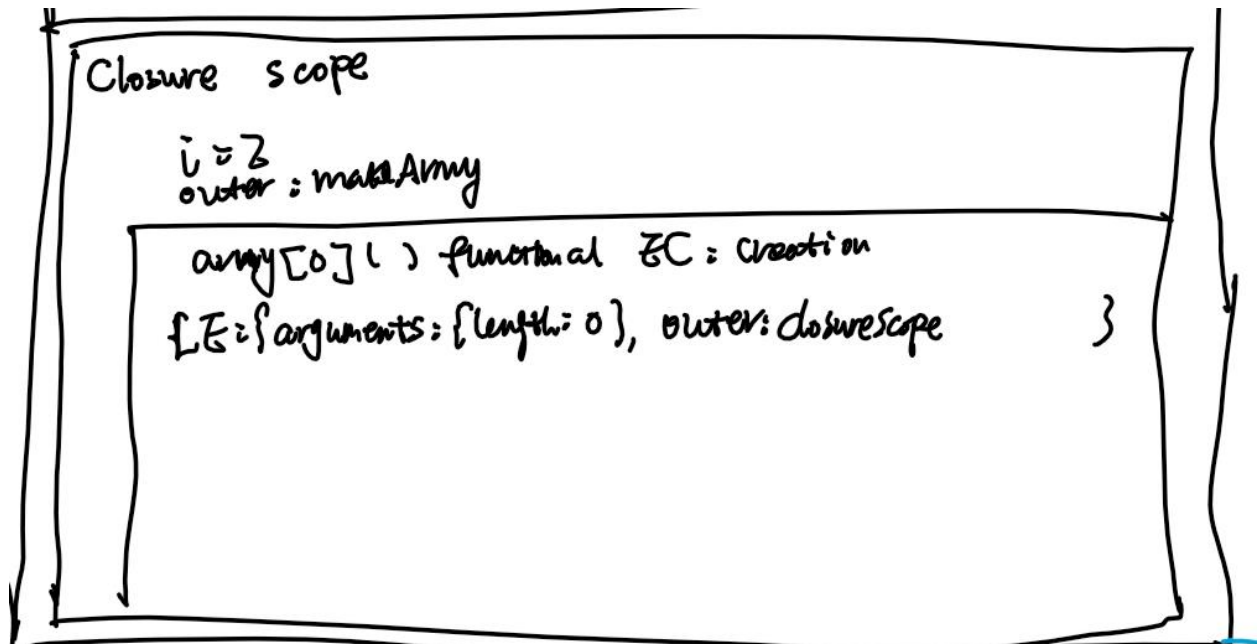 Closure scope
i = 2
outer : makeArray
array[0]( ) functional EC : creation
{LE:{arguments:{length: 0}, outer: closurescope }